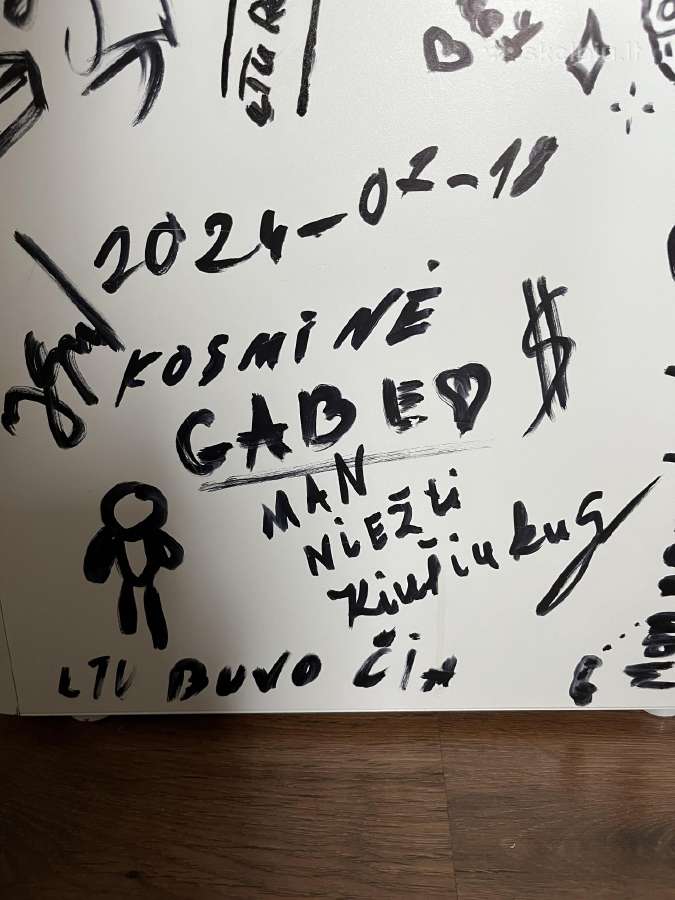 LTU
2024-02-18
KOSMINĖ
GABED
$
MAN
NIEŽTI
Kiušiukus
LTU BUVO ČIA
skelbiu.lt